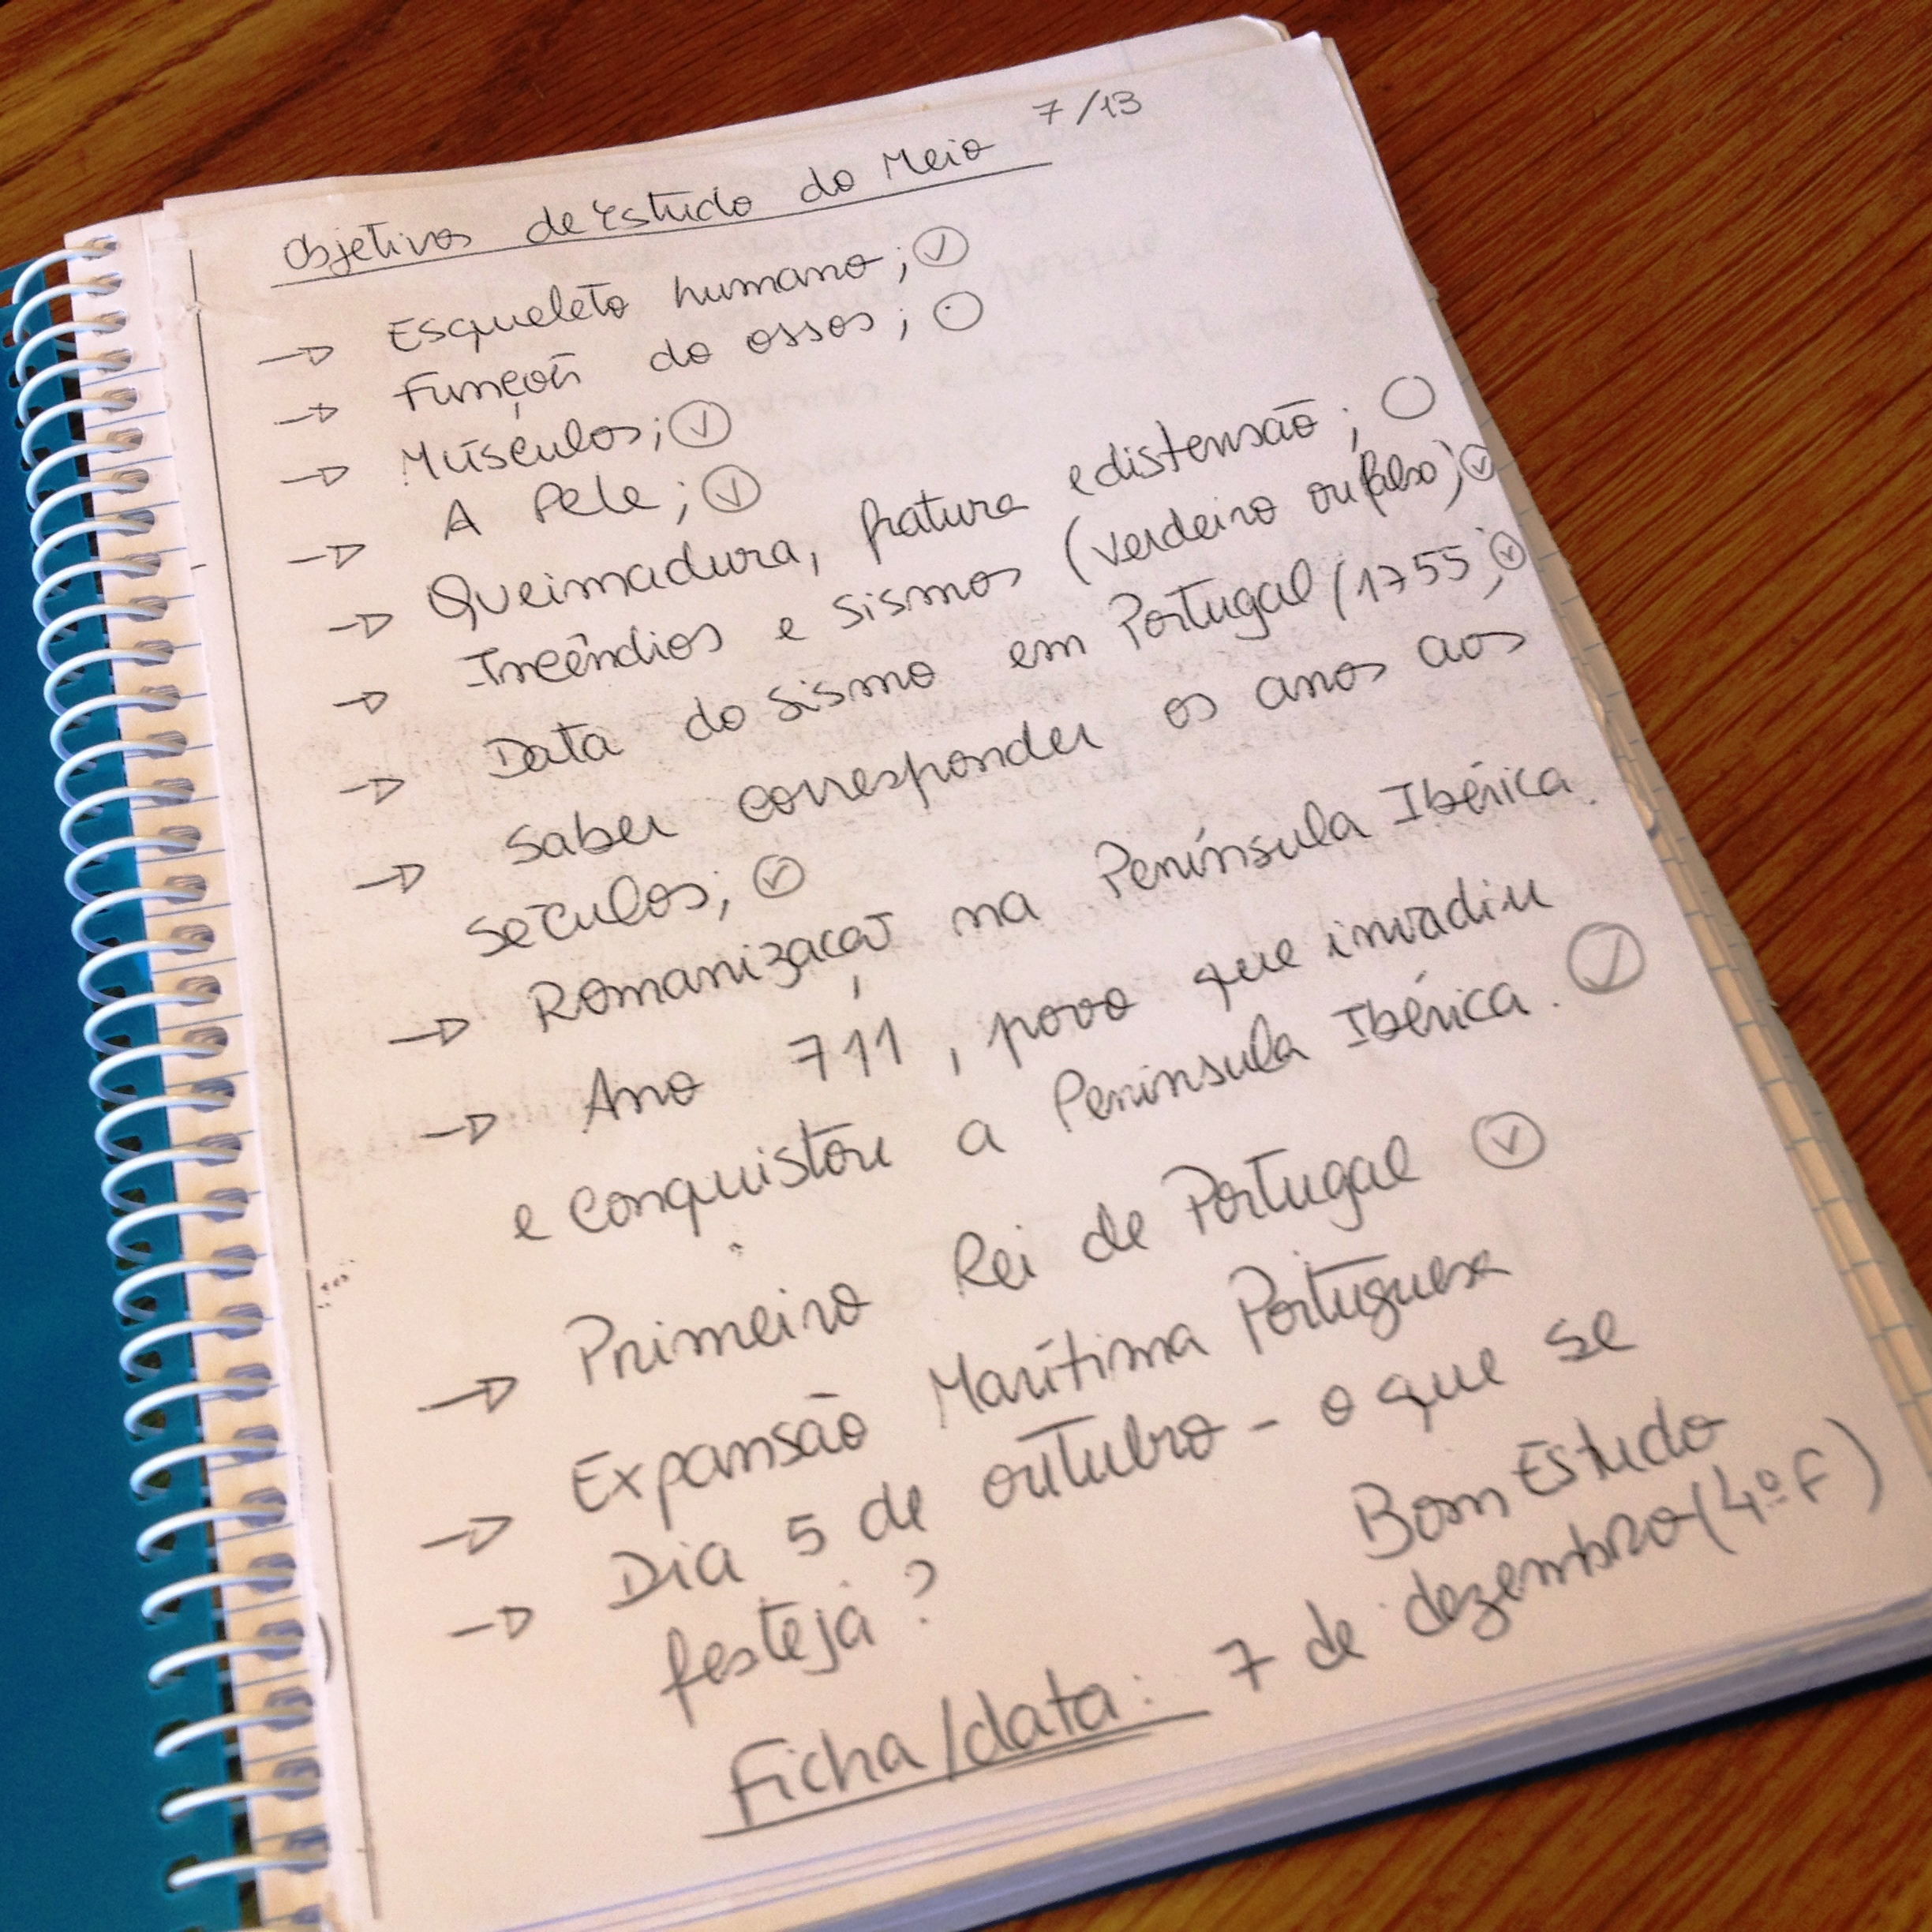 7/13
Objetivos de Estudo do Meio
→ Esqueleto humano; ✓
→ Função do ossos;
→ Músculos; ✓
→ A Pele; ✓
→ Queimadura, fratura e distensão;
→ Incêndios e sismos (verdeiro ou falso) ✓
→ Data do sismo em Portugal (1755; ✓
→ Saber corresponder os anos aos
séculos; ✓
→ Romanização na Península Ibérica.
→ Ano 711, povo que invadiu
e conquistou a Península Ibérica. ✓
→ Primeiro Rei de Portugal ✓
→ Expansão Marítima Portuguesa
→ Dia 5 de outubro - o que se
festeja?
Bom Estudo
Ficha/data: 7 de dezembro (4º F)